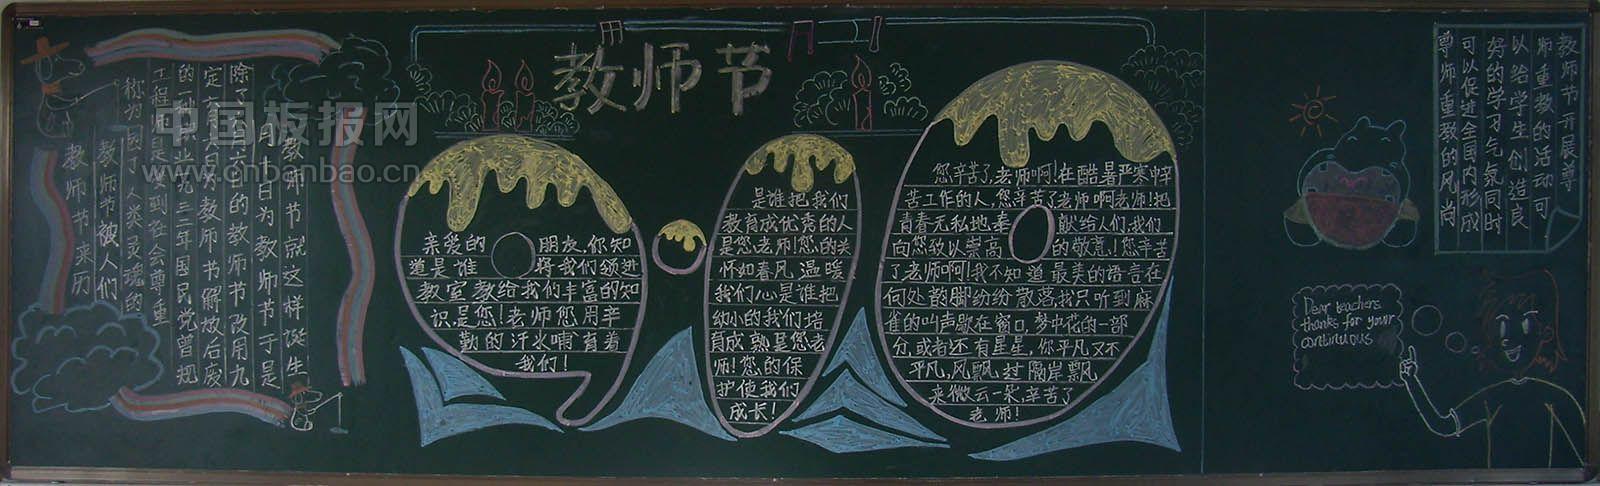 教师节
教师节来历
教师节被人们
称为园丁人类灵魂的
工程师是受到社会尊重
的一种职业九三二年国民党曾规
定六月六日为教师节解放后废
除了六月六日的教师节改用九
月十日为教师节于是
教师节就这样诞生
中国板报网
www.cnbanbao.cn
9.10
亲爱的朋友,你知
道是谁将我们领进
教室教给我们丰富的知
识是您!老师您用辛
勤的汗水哺育着
我们!
是谁把我们
教育成优秀的人
是您老师!您的关
怀如春风温暖
我们心是谁把
幼小的我们培
育成熟是您老
师!您的保
护使我们
成长!
您辛苦了,老师啊!在酷暑严寒中辛
苦工作的人,您辛苦了老师啊老师!把
青春无私地奉献给人们,我们
向您致以崇高的敬意!您辛苦
了老师啊!我不知道最美的语言在
何处韵脚纷纷散落,我只听到麻
雀的叫声歇在窗口,梦中花的一部
分,或者还有星星,你平凡又不
平凡,风飘过隔岸飘
来微云一朵,辛苦了
老师!
教师节开展尊
师重教的活动可
以给学生创造良
好的学习气氛同时
可以促进全国内形成
尊师重教的风尚
Dear teachers
thanks for your
continuous